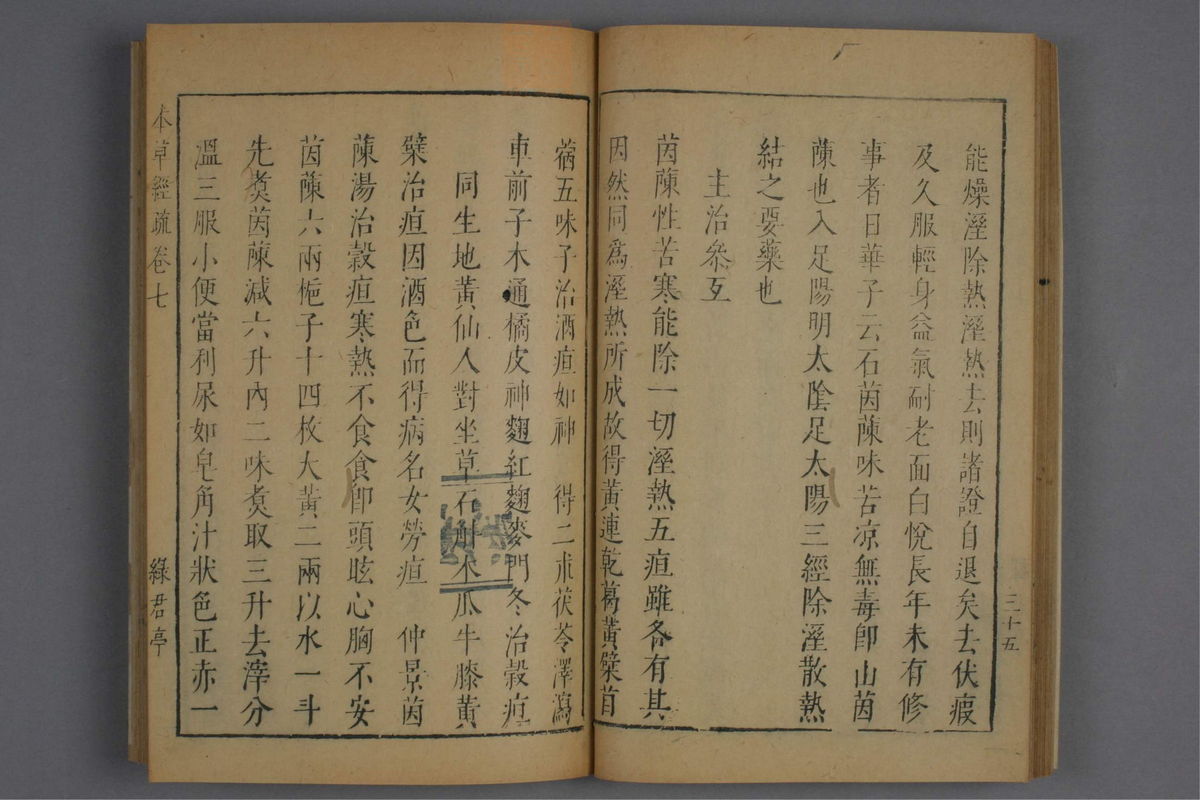 能燥溼除熱溼熱去則諸證自退矣去伏瘕
及久服輕身益氣耐老面白悅長年未有修
事者日華子云石茵蔯味苦凉無毒卽山茵
蔯也入足陽明太陰足太陽三經除溼散熱
結之要藥也
主治叅互
茵蔯性苦寒能除一切溼熱五疸雖各有其
因然同爲溼熱所成故得黃連乾葛黃檗苜
蓿五味子治酒疸如神　得二朮茯苓澤瀉
車前子木通橘皮神麯紅麯麥門冬治穀疸
同生地黃仙人對坐草石斛木瓜牛膝黃
檗治疸因酒色而得病名女勞疸　仲景茵
蔯湯治穀疸寒熱不食食卽頭眩心胸不安
茵蔯六兩梔子十四枚大黃二兩以水一斗
先煑茵蔯減六升內二味煑取三升去滓分
溫三服小便當利尿如皂角汁狀色正赤一
本草經疏卷七
綠君亭
三十五